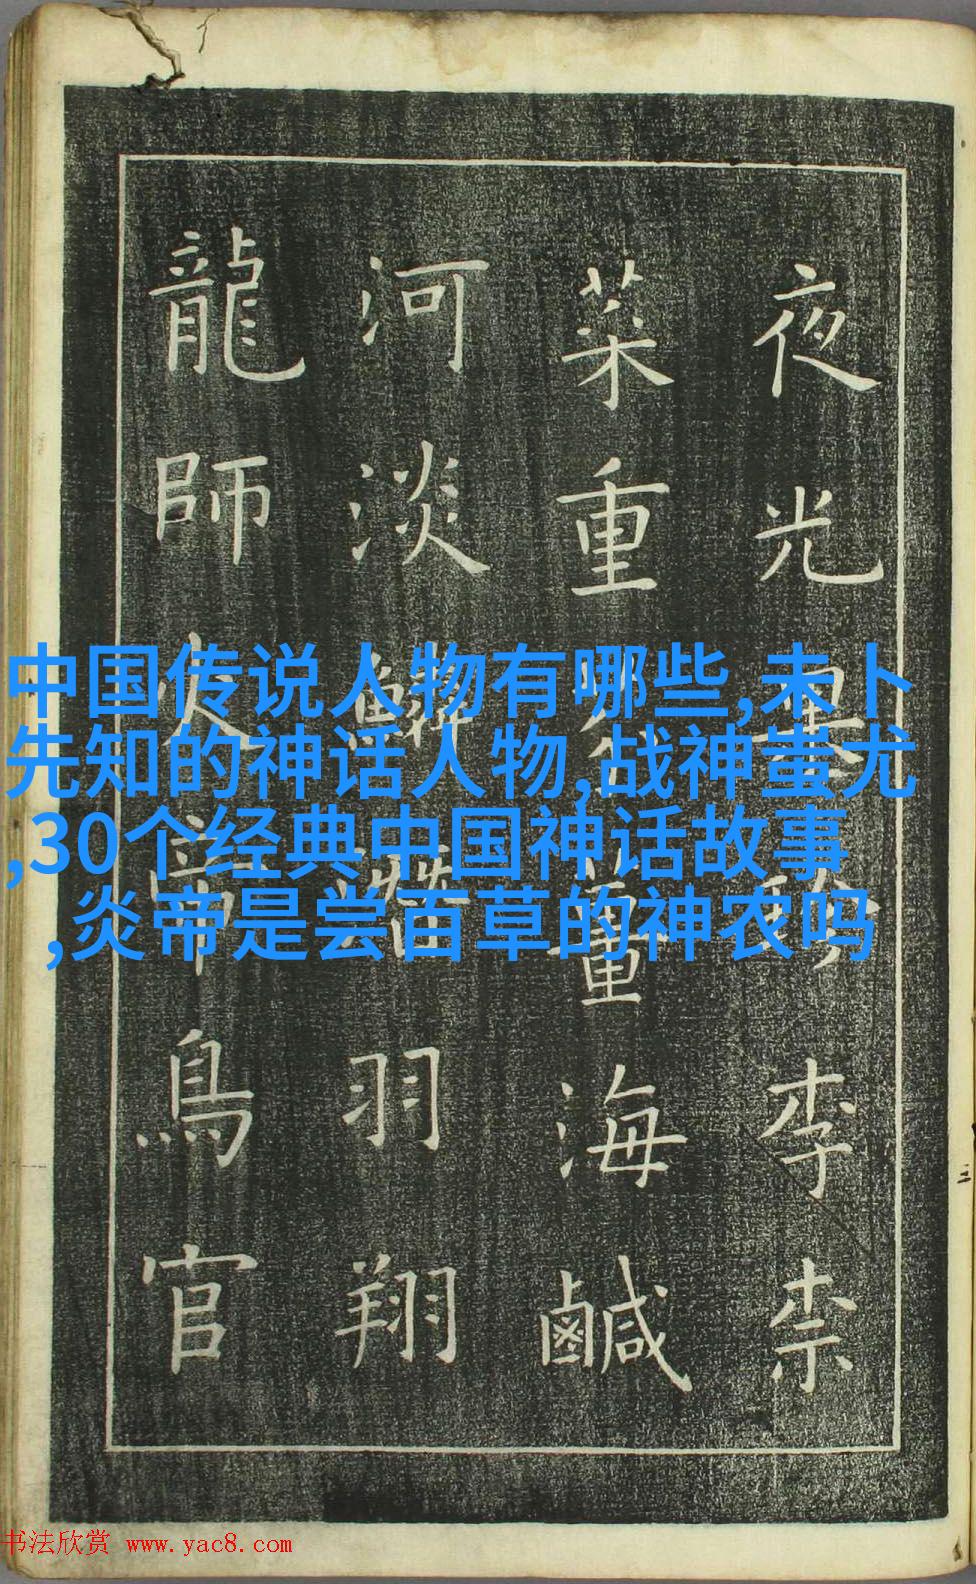 夜光果珍李柰
菜重芥薑海鹹
河淡鱗潛羽翔
龍師火帝鳥官
中国传说人物有哪些,未卜
先知的神话人物,战神蚩尤
,30个经典中国神话故事
,炎帝是尝百草的神农吗
书法欣赏 www.yac8.com